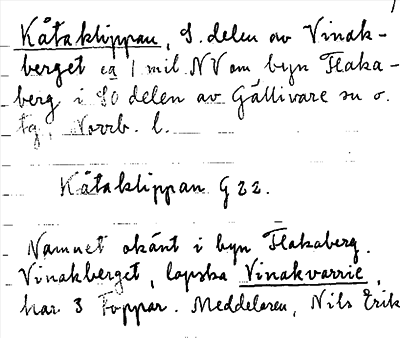 Kåtaklippan, S. delen av Vinak-
berget ca 1 mil NV om byn Flaka-
berg i SO delen av Gällivare sn o.
tg, Norrb. l.
Kåtaklippan G 22.
Namnet okänt i byn Flakaberg.
Vinakberget, lapska Vinakvarrie,
har 3 toppar. Meddelaren, Nils Erik